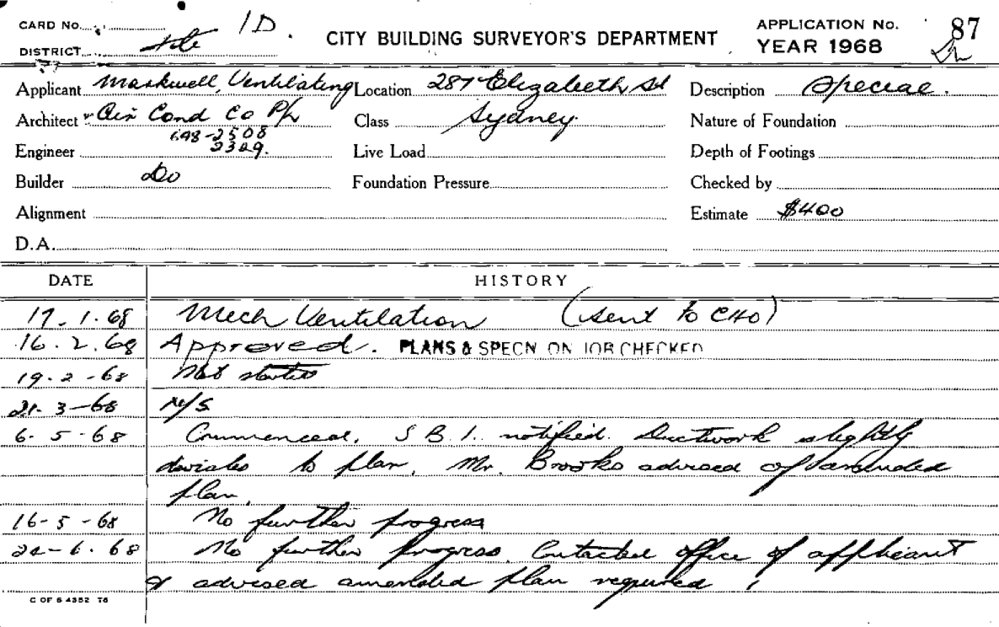 CARD No. 1D. CITY BUILDING SURVEYOR'S DEPARTMENT APPLICATION No. 87
DISTRICT YEAR 1968
Applicant Maxkwell, Ventilating Location 287 Elizabeth St Description Special.
Architect & Air Cond Co P/L Class Sydney. Nature of Foundation
698-2508
Engineer 2329. Live Load Depth of Footings
Builder Do Foundation Pressure Checked by
Alignment Estimate $400
D.A.
DATE HISTORY
17.1.68 Mech Ventilation (sent to CHO)
16.2.68 Approved. PLANS & SPECN ON JOB CHECKED
19.2-68 Not started
21.3-68 N/S
6.5-68 Commenced. S B I. notified. Ductwork slightly
deviates to plan. Mr. Brooks advised of amended
plan.
16-5-68 No further progress
24-6.68 No further progress. Contacted office of applicant
& advised amended plan required
C OF S 4352 T6